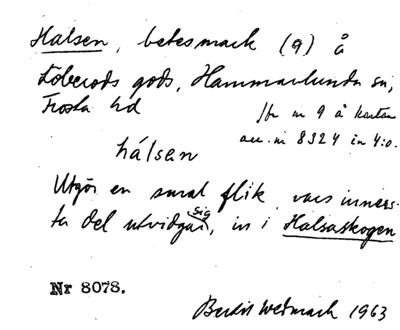 Halsen, betesmark (9) å
Löberöds gods, Hammarlunda sn,
Frosta hd
jfr nr 9 å kartan
acc. nr 8324 in 4:o.
hálsen
Utgör en smal flik, vars inners-
ta del utvidgar sig, in i Halsaskogen
Nr 8078.
Berit Wedmark 1963